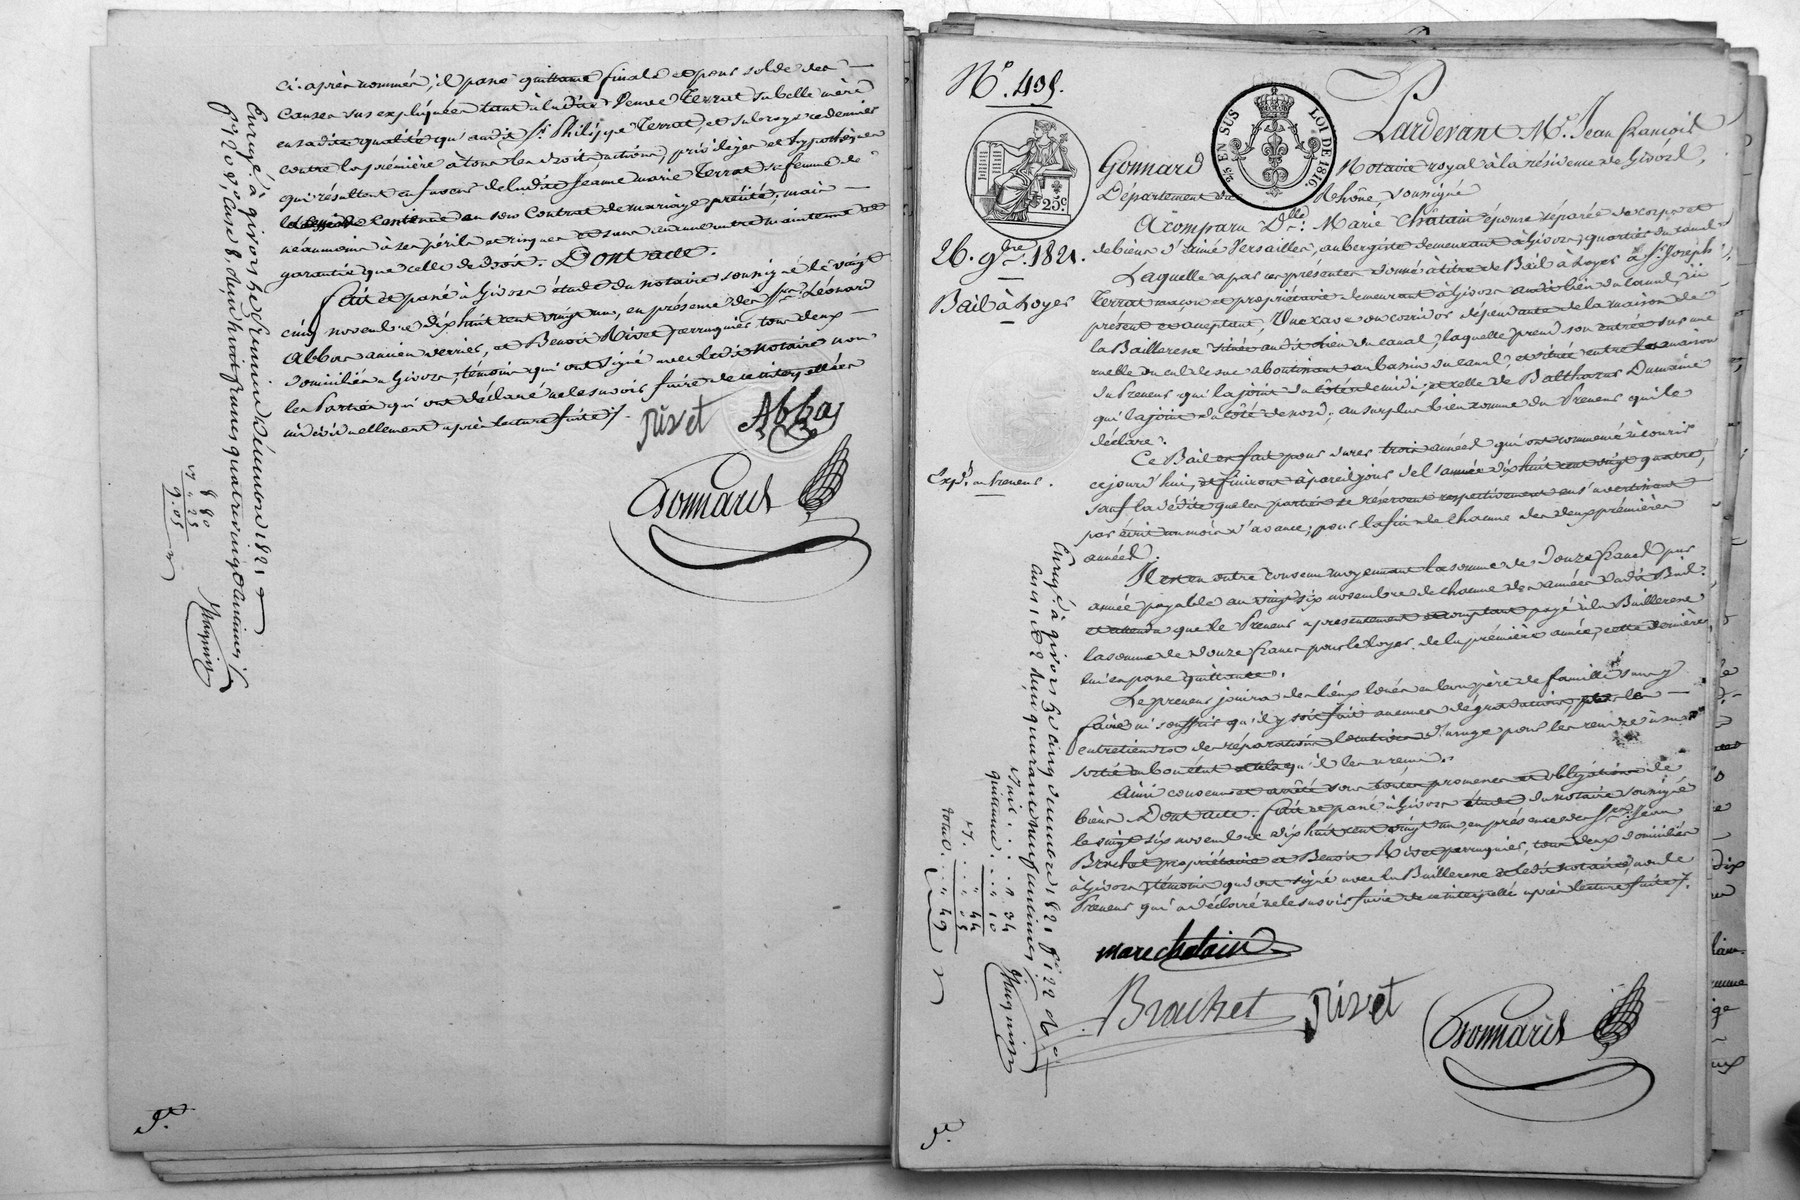 ci-après nommés, il passe quittance finale et pour solde des
causes sus expliquées tant à ladite Veuve Terrat sa belle mère
en sadite qualité qu'audit Sr. Philippe Terrat, et subroge ce dernier
contre la première à tous les droits, actions, privilèges et hypothèques
qui résultent en faveur de ladite Jeanne Marie Terrat sa femme de
contenue au sus contrat de mariage précité, mais
néanmoins à ses périls et risques et sans aucune autre maintenue et
garantie que celle de droit. Dont acte.
Fait et passé à Givors étude du notaire soussigné le vingt
cinq novembre dix huit cent vingt un, en présence des Srs. Léonard
Abbas ancien verrier, et Benoit Rivet perruquier, tous deux
domiciliés à Givors, témoins qui ont signé avec ledit notaire non
les Parties qui ont déclaré ne le savoir faire de ce interpellées
individuellement après lecture faite ./.
Rivet Abbas
Gonnard
Enregé. à givors le premier décembre 1821
fo. 120 vo. Case 8 du huit francs quatre vingt centimes ./.
8 80
" 25
9.05
Magnin
No. 435.
Pardevant Me. Jean François
25 EN SUS LOI DE 1816.
25c.
Gonnard Notaire royal à la résidence de Givors,
Département du Rhône, soussigné
26. 9bre. 1821.
A comparu Dlle. Marie Chatain épouse séparée de corps et
de biens d'Aimé Versailles, aubergiste demeurant à Givors, quartier du canal
Laquelle a par ces présentes donné à titre de Bail à loyer à Sr. Joseph
Bail à loyer
Terrat maçon et propriétaire demeurant à Givors audit lieu du canal, ici
présent et acceptant, Une cave ou corridor dépendante de la maison de
la Bailleresse située audit lieu du canal, laquelle prend son entrée sur une
ruelle ou cul de sac aboutissant au bassin du canal, et située entre les maisons
du Preneur qui la joint du côté de midi, et celle de Balthazar Dumaine
qui la joint du côté de nord; au surplus bien connue du Preneur qui le
déclare.
Expd. au preneur.
Ce Bail est fait pour durer trois années qui ont commencé à courir
cejourd'hui, et finiront à pareil jour de l'année dix huit cent vingt quatre,
sauf la dédite que les parties se réservent respectivement en s'avertissant
par écrit un mois d'avance, pour la fin de chacune des deux premières
années.
Il est en outre consenti moyennant la somme de douze francs par
année payable au vingt six novembre de chacune des années dudit Bail.
et attendu que le Preneur a présentement et comptant payé à la Bailleresse
la somme de douze francs pour le loyer de la première année, cette dernière
lui en passe quittance.
Le preneur jouira des lieux loués en bon père de famille sans y
faire ni souffrir qu'il y soit fait aucunes dégradations, les
entretiendra des réparations locatives d'usage pour les rendre à sa
sortie en bon état et tels qu'il les a reçus.
Ainsi convenu et arrêté sous toutes promesses et obligations de
biens. Dont acte. Fait et passé à Givors étude du notaire soussigné
le vingt six novembre dix huit cent vingt un, en présence des Srs. Jean
Brochet propriétaire et Benoit Rivet perruquier, tous deux domiciliés
à Givors, témoins qui ont signé avec la Bailleresse et ledit notaire, non le
Preneur qui a déclaré ne le savoir faire de ce interpellé après lecture faite ./.
mare chatain
Brochet Rivet
Gonnard
Enregé. à givors le cinq décembre 1821 fo. 122 vo.
Cases 1 et 2 du quarante neuf centimes ./.
Bail . . . " 34
quittance . . " 10
" 44
" 5
Total . . " 49
Magnin